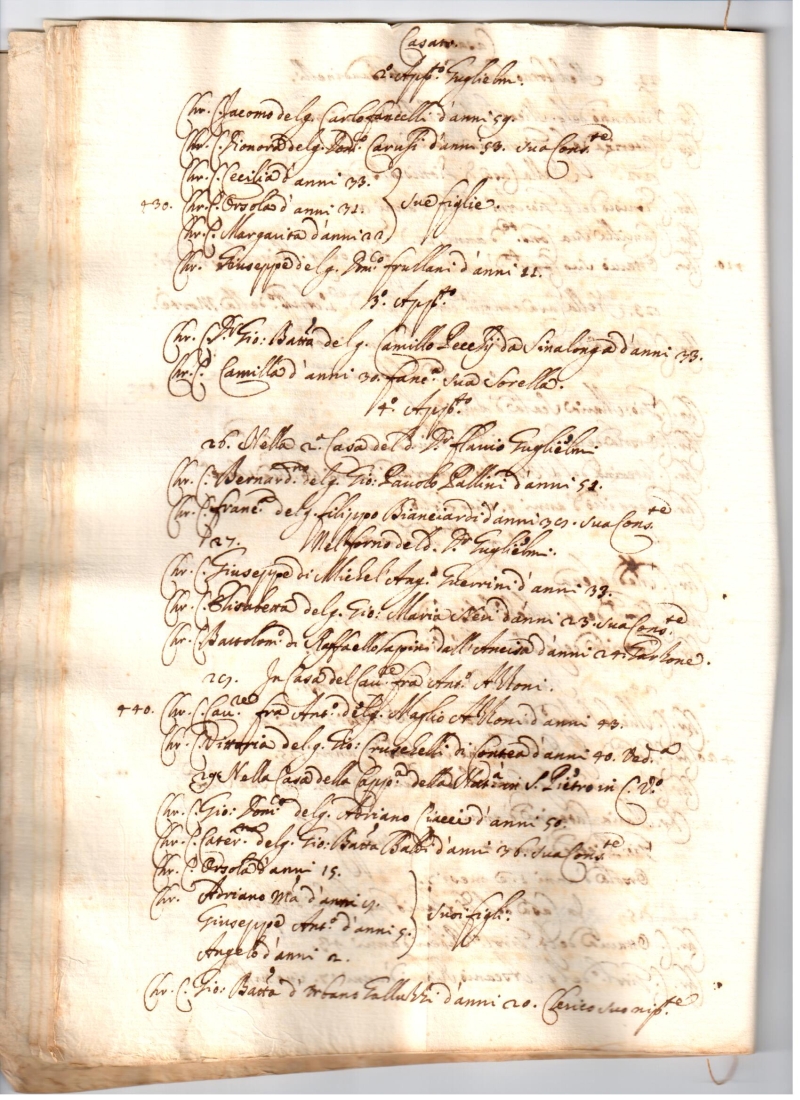 Casato.
2.° App.to Guglielmi.
Chr. C. Jacomo del q. Carlo fancelli d'anni 59.
Chr. C. Lionora del q. Dom.co Carusi d'anni 53. sua Cons.te
Chr. C. Cecilia d'anni 33.
430. Chr. C. Orsola d'anni 31. sue figlie.
Chr. C. Margarita d'anni 22
Chr. Giuseppe del q. Dom.co frullani d'anni 11.
3.° App.to
Chr. C. D.r Gio: Batta del q. Camillo da Sinalonga d'anni 33.
Chr. C. Camilla d'anni 30. fanc.a sua Sorella.
4.° App.to
26. Nella 2.a Casa del d. D.r flavio Guglielmi
Chr. C. Bernard.no del q. Gio: Pavolo Pallini d'anni 51.
Chr. C. franc.a del q. filippo Bianciardi d'anni 39. sua Cons.te
27. Nel forno del d. D.r Guglielmi.
Chr. C. Giuseppe di Michel Ang.o Guerrini d'anni 33.
Chr. C. Elisabetta del q. Gio: Maria Neri d'anni 23. sua Cons.te
Chr. C. Bartolom.o di Raffaello Sapini dall'Ancisa d'anni 24. Garzone.
29. In Casa del Cav.re frà Ant.o
440. Chr. C. Cav.re frà Ant.o del q. d'anni 43.
Chr. C. Vittoria del q. Gio: d'anni 40. Ved.a
29. Nella Casa della Capp.a della Nat.à in S. Pietro in C. V.o
Chr. C. Gio: Dom.co del q. Adriano Ciacci d'anni 50.
Chr. C. Cater.na del q. Gio: Batta Babi d'anni 36. sua Cons.te
Chr. C. Orsola d'anni 15.
Chr. Adriano M.a d'anni 9. suoi figli.
Giuseppe Ant.o d'anni 5.
Angelo d'anni 2.
Chr. C. Gio: Batta d'Urbano Galluzzi d'anni 20. Clerico suo nip.te